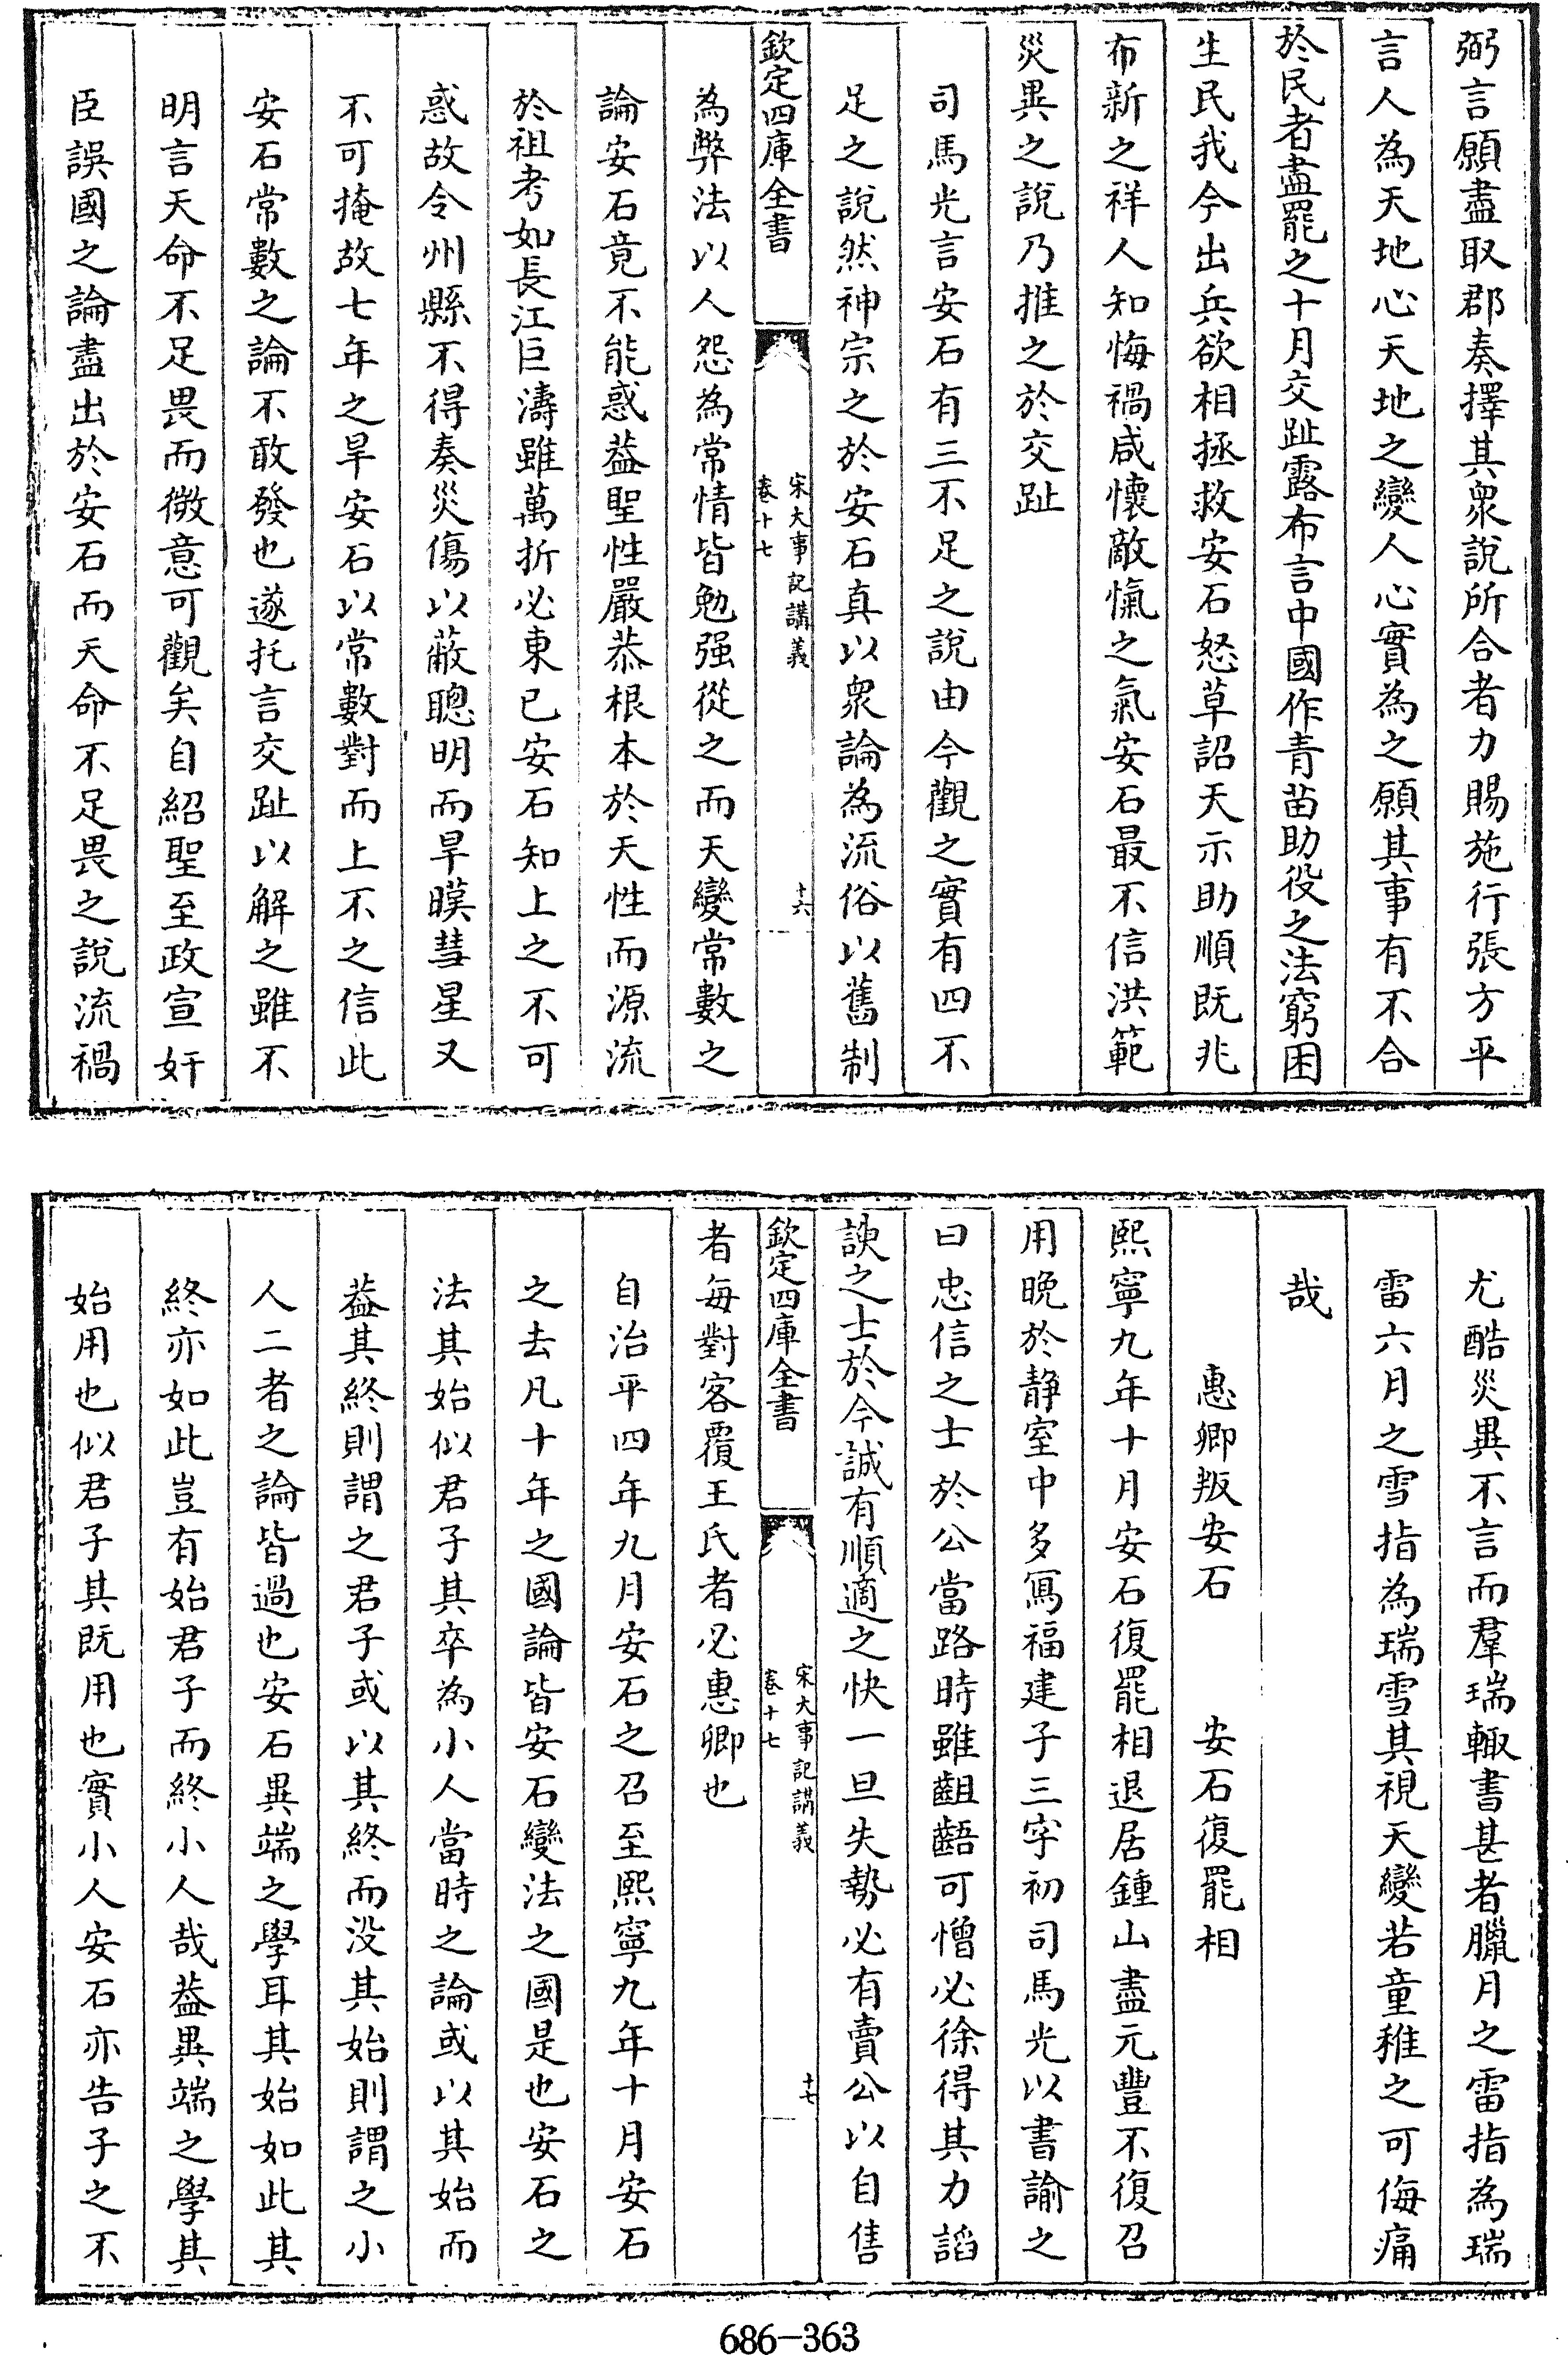 弼言願盡取郡奏擇其衆說所合者力賜施行張方平
言人為天地心天地之變人心實為之願其事有不合
於民者盡罷之十月交趾露布言中國作青苗助役之法窮困
生民我今出兵欲相拯救安石怒草詔天示助順既兆
布新之祥人知悔禍咸懷敵愾之氣安石最不信洪範
災異之說乃推之於交趾
司馬光言安石有三不足之說由今觀之實有四不
足之說然神宗之於安石真以衆論為流俗以舊制
欽定四庫全書
宋大事記講義
卷十七
十六
為弊法以人怨為常情皆勉强從之而天變常數之
論安石竟不能惑葢聖性嚴恭根本於天性而源流
於祖考如長江巨濤雖萬折必東已安石知上之不可
惑故令州縣不得奏災傷以蔽聰明而旱暵彗星又
不可掩故七年之旱安石以常數對而上不之信此
安石常數之論不敢發也遂托言交趾以解之雖不
明言天命不足畏而微意可觀矣自紹聖至政宣奸
臣誤國之論盡出於安石而天命不足畏之說流禍
尤酷災異不言而羣瑞輙書甚者臘月之雷指為瑞
雷六月之雪指為瑞雪其視天變若童稚之可侮痛
哉
惠卿叛安石 安石復罷相
熙寧九年十月安石復罷相退居鍾山盡元豐不復召
用晚於静室中多寫福建子三字初司馬光以書諭之
曰忠信之士於公當路時雖齟齬可憎必徐得其力諂
諛之士於今誠有順適之快一旦失勢必有賣公以自售
欽定四庫全書
宋大事記講義
卷十七
十七
者每對客覆王氏者必惠卿也
自治平四年九月安石之召至熙寧九年十月安石
之去凡十年之國論皆安石變法之國是也安石之
法其始似君子其卒為小人當時之論或以其始而
葢其終則謂之君子或以其終而没其始則謂之小
人二者之論皆過也安石異端之學耳其始如此其
終亦如此豈有始君子而終小人哉葢異端之學其
始用也似君子其既用也實小人安石亦告子之不
686-363